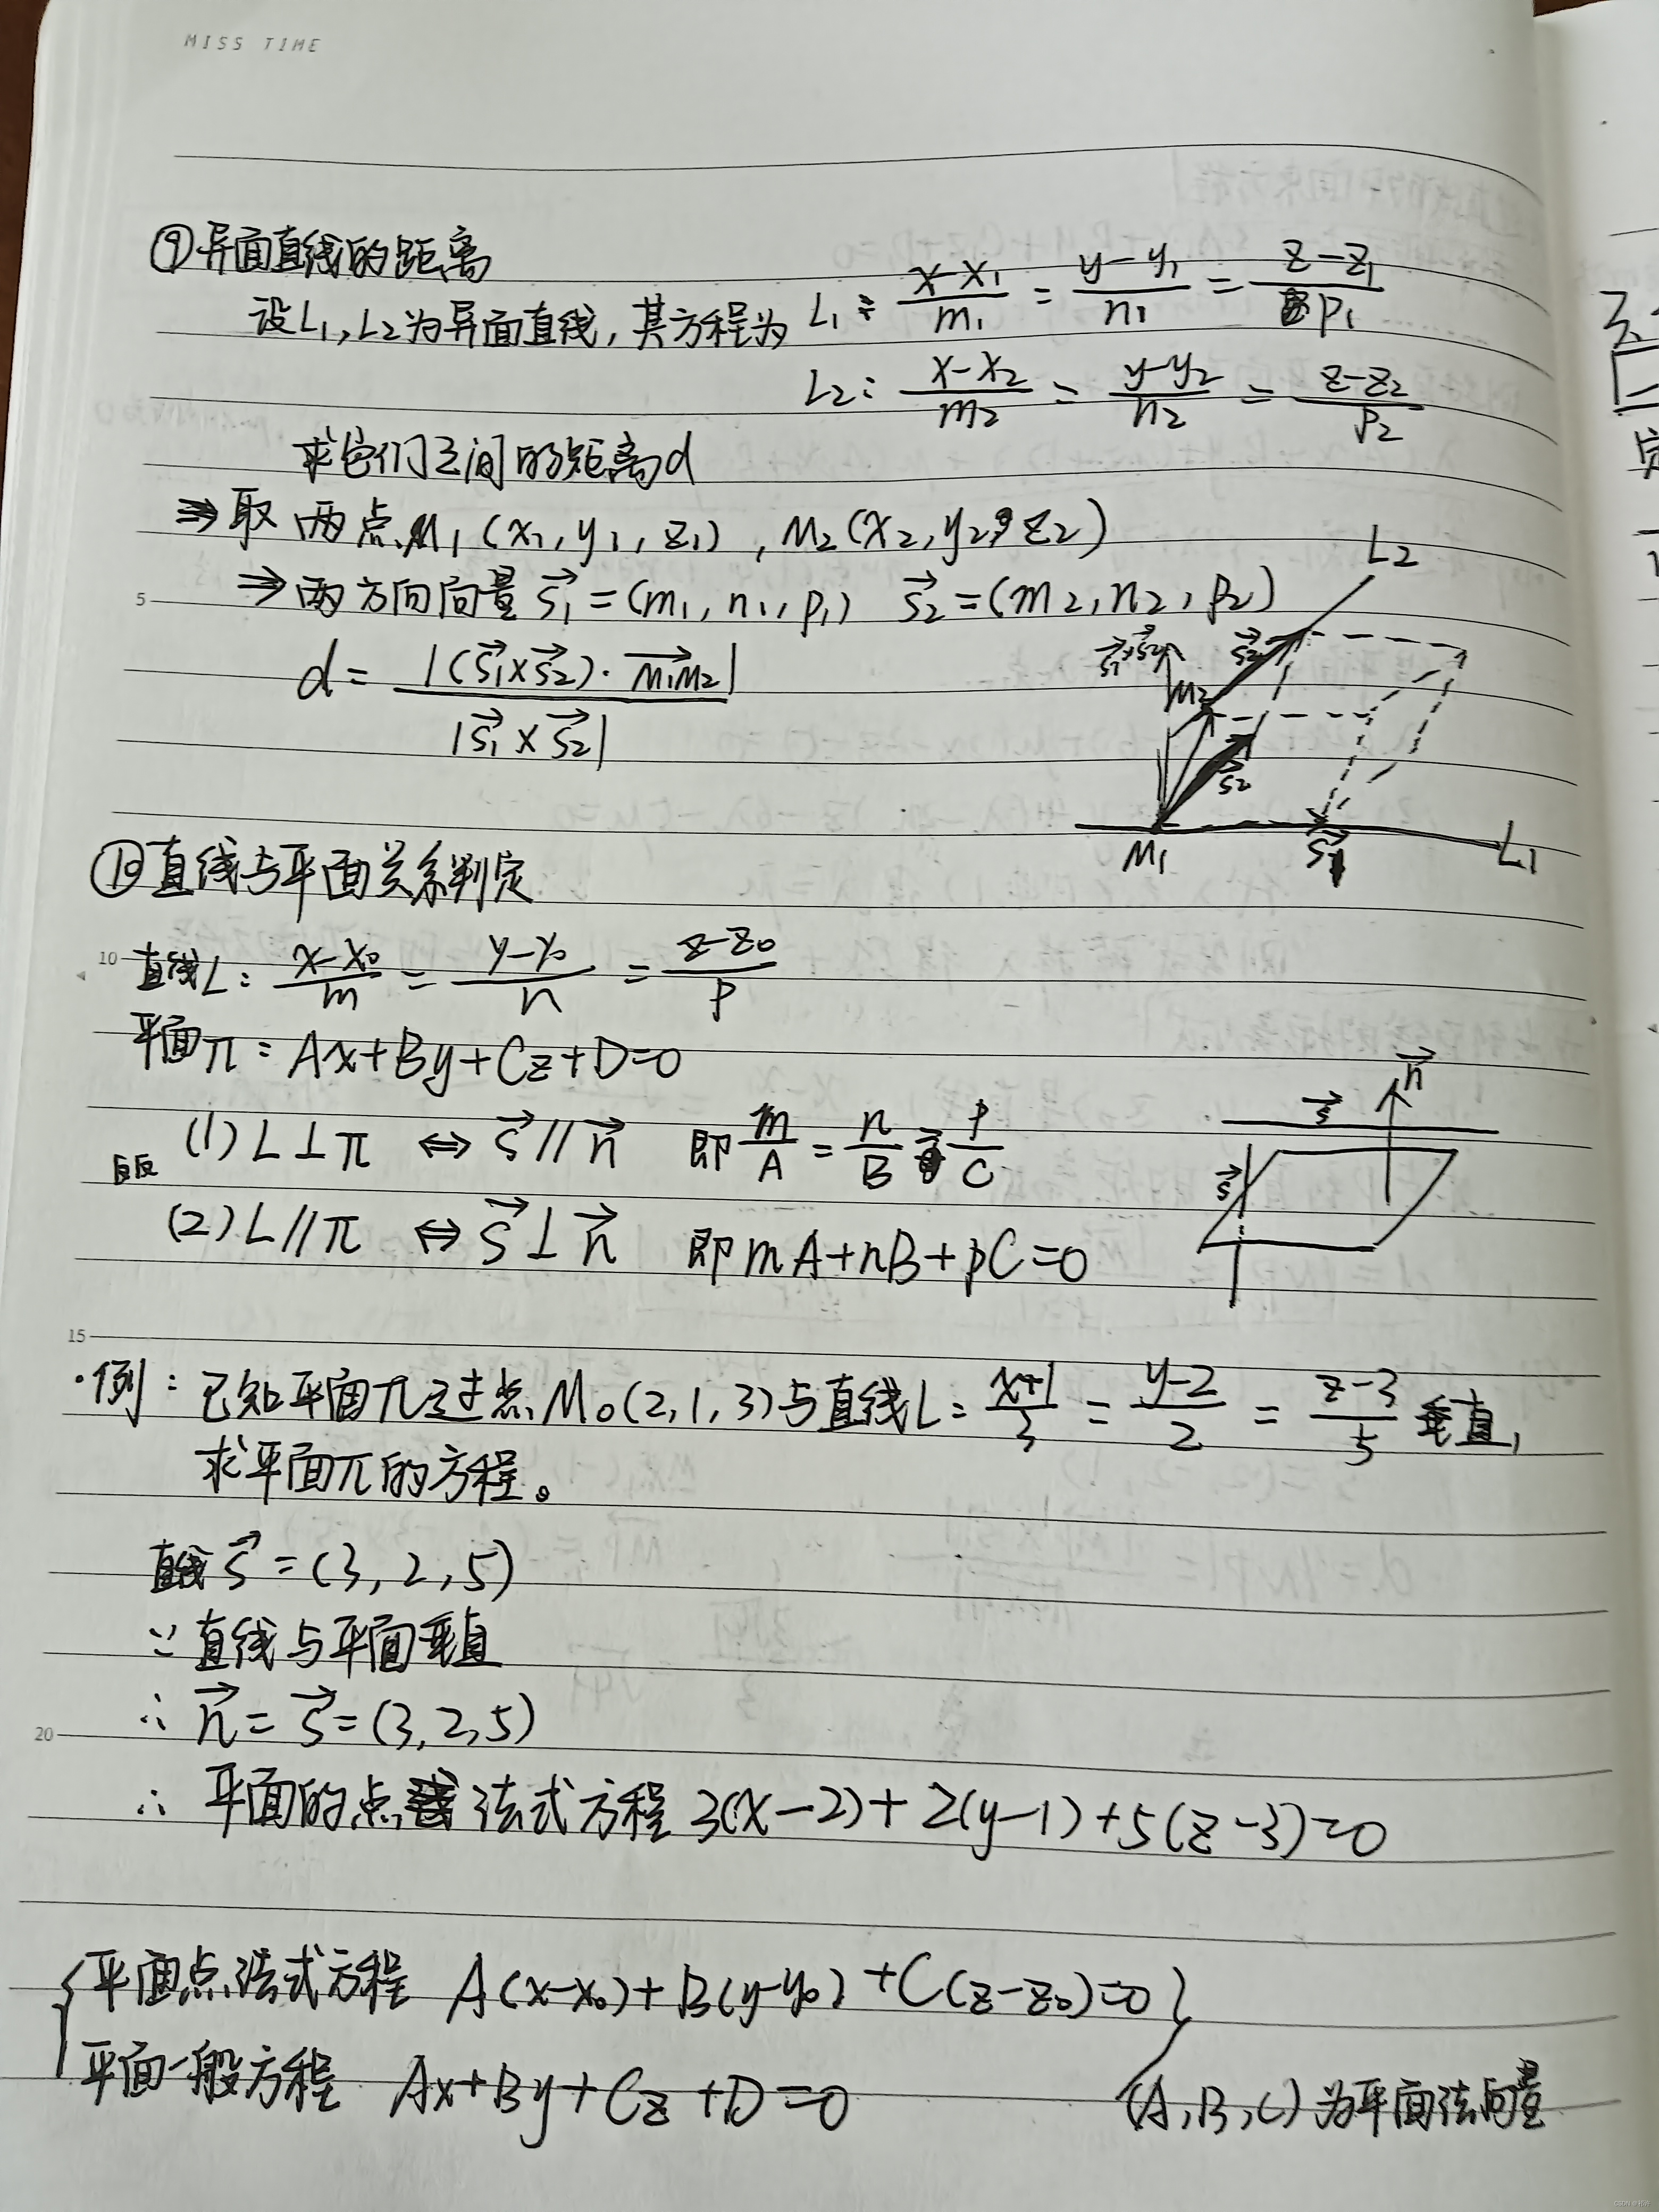 MISS TIME
⑨异面直线的距离
设L₁,L₂为异面直线,其方程为 L₁: (x-x₁)/m₁ = (y-y₁)/n₁ = (z-z₁)/p₁
L₂: (x-x₂)/m₂ = (y-y₂)/n₂ = (z-z₂)/p₂
求它们之间的距离d
⇒取两点M₁(x₁,y₁,z₁),M₂(x₂,y₂,z₂)
L₂
5
⇒两方向向量s⃗₁=(m₁,n₁,p₁) s⃗₂=(m₂,n₂,p₂)
d= |(s⃗₁×s⃗₂)·M₁M₂⃗| / |s⃗₁×s⃗₂|
s⃗₁×s⃗₂ s⃗₂
M₂
s⃗₂
M₁ s⃗₁ L₁
⑩直线与平面关系判定
10
直线L: (x-x₀)/m = (y-y₀)/n = (z-z₀)/p
平面π: Ax+By+Cz+D=0
n⃗
s⃗
(1)L⊥π ⇔ s⃗∥n⃗ 即 m/A = n/B = p/C
s⃗
(2)L∥π ⇔ s⃗⊥n⃗ 即mA+nB+pC=0
15
·例:已知平面π过点M₀(2,1,3)与直线L: (x+1)/3 = (y-2)/2 = (z-3)/5 垂直,
求平面π的方程。
直线s⃗=(3,2,5)
∵直线与平面垂直
∴n⃗=s⃗=(3,2,5)
20
∴平面的点法式方程3(x-2)+2(y-1)+5(z-3)=0
平面点法式方程 A(x-x₀)+B(y-y₀)+C(z-z₀)=0
平面一般方程 Ax+By+Cz+D=0
(A,B,C)为平面法向量